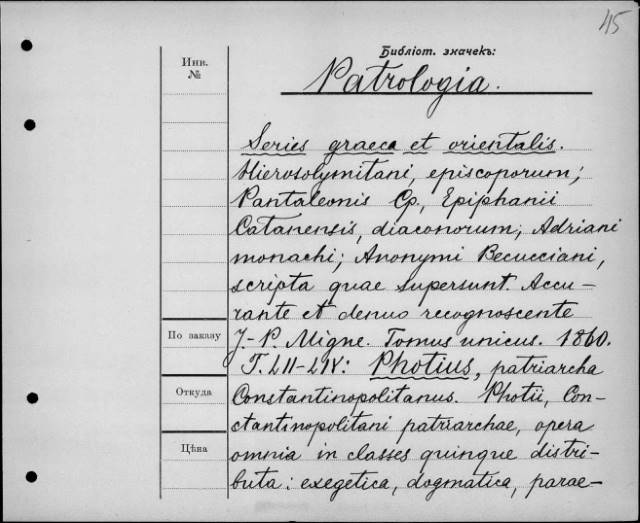 45
Библіот. значекъ:
Инв.
№
Patrologia.
Series graeca et orientalis.
Hierosolymitani, episcoporum;
Pantaleonis Cp., Epiphanii
Catanensis, diaconorum; Adriani
monachi; Anonymi Becucciani,
scripta quae supersunt. Accu-
rante et denuo recognoscente
По заказу
J.-P. Migne. Tomus unicus. 1860.
T. LII-LIV: Photius, patriarcha
Откуда
Constantinopolitanus. Photii, Con-
ctantinopolitani patriarchae, opera
omnia in classes quinque distri-
Цѣна
buta: exegetica, dogmatica, parae-